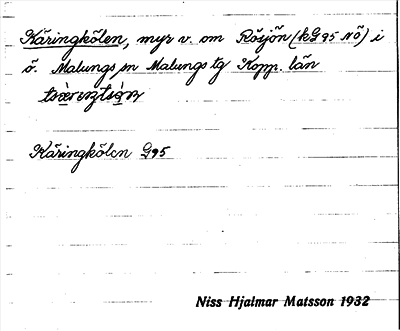 Käringkölen, myr v. om Rösjön (kG 95 NÖ) i
ö. Malungs sn Malungs tg Kopp. län
Käringkölen G95
Niss Hjalmar Matsson 1932